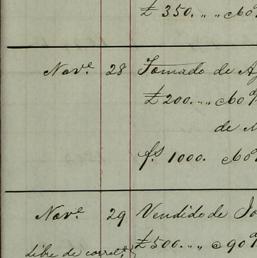 £ 350. „ „ c60
Nov.e 28 Tomado de
£200. „ „ c60
de
fs 1000. c60
Nov.e 29 Vendido de Jo
libe de corret.
£500. „ c90